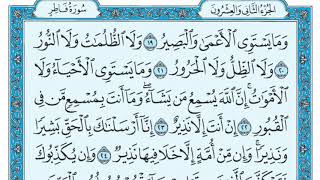 الجزء الثاني والعشرون
سورة فاطر
وَمَا يَسْتَوِى ٱلْأَعْمَىٰ وَٱلْبَصِيرُ ١٩ وَلَا ٱلظُّلُمَٰتُ وَلَا ٱلنُّورُ
٢٠ وَلَا ٱلظِّلُّ وَلَا ٱلْحَرُورُ ٢١ وَمَا يَسْتَوِى ٱلْأَحْيَآءُ وَلَا
ٱلْأَمْوَٰتُ ۚ إِنَّ ٱللَّهَ يُسْمِعُ مَن يَشَآءُ ۖ وَمَآ أَنتَ بِمُسْمِعٍ مَّن فِى
ٱلْقُبُورِ ٢٢ إِنْ أَنتَ إِلَّا نَذِيرٌ ٢٣ إِنَّآ أَرْسَلْنَٰكَ بِٱلْحَقِّ بَشِيرًا
وَنَذِيرًا ۚ وَإِن مِّنْ أُمَّةٍ إِلَّا خَلَا فِيهَا نَذِيرٌ ٢٤ وَإِن يُكَذِّبُوكَ